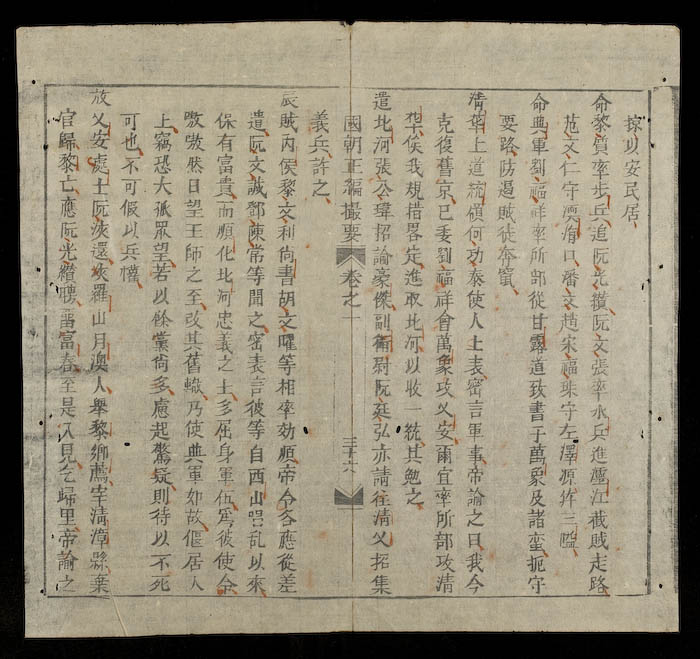 掠以安民居
命黎質率步兵追阮光纘阮文張率水兵進瀘江截賊走路
范文仁守澳海口潘文趙宋福珠守左澤源三隘
命典軍劉福祥率所部從甘露道致書于萬象及諸蠻扼守
要路防遏賊徒奔竄
清華上道統領何功泰使人上表密言軍事帝諭之曰我今
克復舊京已委劉福祥會萬象攻乂安爾宜率所部攻清
華俟我規措畧定進取北河以收一統其勉之
遣北河張公瑋招諭豪傑副衛尉阮廷弘亦請往清乂招集
國朝正編撮要 卷之一 三十六
義兵許之
辰賊丙侯黎文利尚書胡文曜等相率効順帝令各應從差
遣阮文誠鄧陳常等聞之密表言彼等自西山唱乱以來
保有富貴而順化北河忠義之士多屈身軍伍爲彼使令
嗷嗷然日望王師之至改其舊轍乃使典軍如故偃居人
上竊恐大孤眾望若以餘黨尚多慮起驚疑則待以不死
可也不可假以兵權
放乂安處士阮浹還浹羅山月澳人舉黎鄉薦宰清漳縣棄
官歸黎亡應阮光纘聘留富春至是入見乞歸里帝諭之